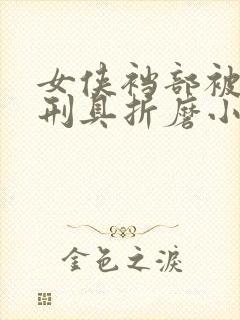 女侠裆部被
刑具折磨小
金色之淚